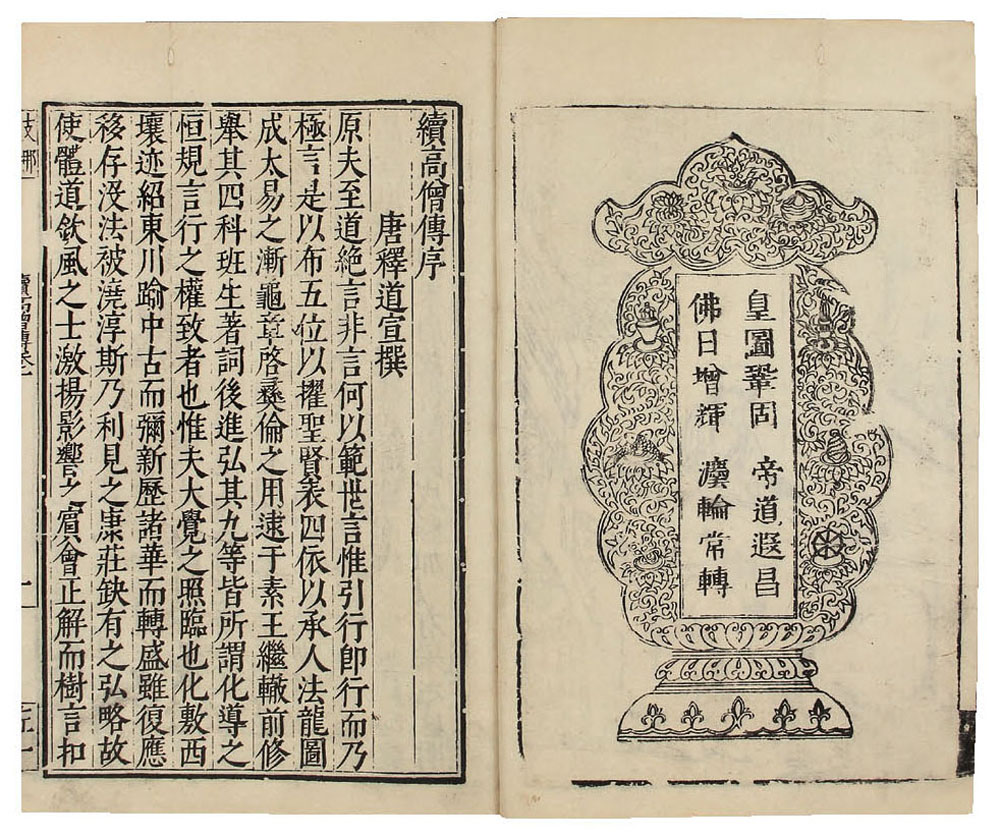 皇圖鞏固　帝道遐昌
佛日增輝　灋輪常轉
續高僧傳序
唐釋道宣撰
原夫至道絕言非言何以範世言惟引行即行而乃
極言是以布五位以擢聖賢表四依以承人法龍圖
成太易之漸龜章啓彝倫之用逮于素王繼轍前修
舉其四科班生著詞後進弘其九等皆所謂化導之
恒規言行之權致者也惟夫大覺之照臨也化敷西
壤迹紹東川踰中古而彌新歷諸華而轉盛雖復應
移存没法被澆淳斯乃利見之康莊缺有之弘略故
使體道欽風之士激揚影響之賓會正解而樹言扣